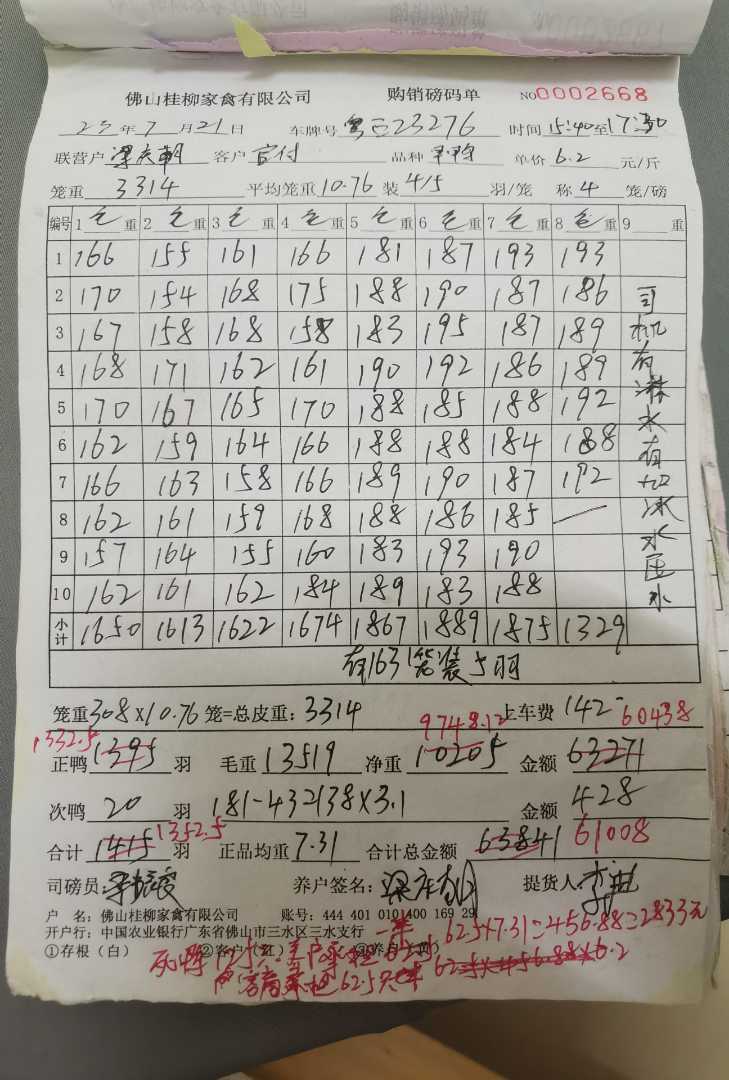 佛山桂柳家禽有限公司 购销磅码单 NO0002668
23年7月21日 车牌号 23276 时间15:40至17:30
联营户 客户 品种 单价6.2元/斤
笼重3314 平均笼重10.76装4/5羽/笼 称4笼/磅
编号 1 毛重 2 毛重 3 毛重 4 毛重 5 毛重 6 毛重 7 毛重 8 毛重 9 重
1 166 155 161 166 181 187 193 193
2 170 154 168 175 188 190 187 186
3 167 158 168 158 183 195 187 189
4 168 171 162 161 190 192 186 189
5 170 167 165 170 188 185 188 192
6 162 159 164 166 188 188 184 188
7 166 163 158 166 189 190 187 192
8 162 161 159 168 188 186 185 —
9 157 164 155 160 183 193 190
10 162 161 162 184 189 183 188
小计 1650 1613 1622 1674 1867 1889 1875 1329
司机有淋水有加冰水压水
有163笼装5羽
笼重308X10.76笼=总皮重:3314 上车费142
1332.5 9748.12 60438
正鸭1395羽 毛重13519 净重10205 金额63271
次鸭20羽 181-43=138X3.1 金额428
合计1415羽 1352.5 正品均重7.31 合计总金额63841 61008
司磅员: 养户签名: 提货人:
户 名:佛山桂柳家禽有限公司 账号:444 401 010 400 169 29
开户行:中国农业银行广东省佛山市三水区三水支行
①存根(白) ②客户(红) ③养户(黄)
死鸭125 养户承担一半62.5 62.5X7.31=456.88=2833元
62.5只 62.5X456.88X6.2